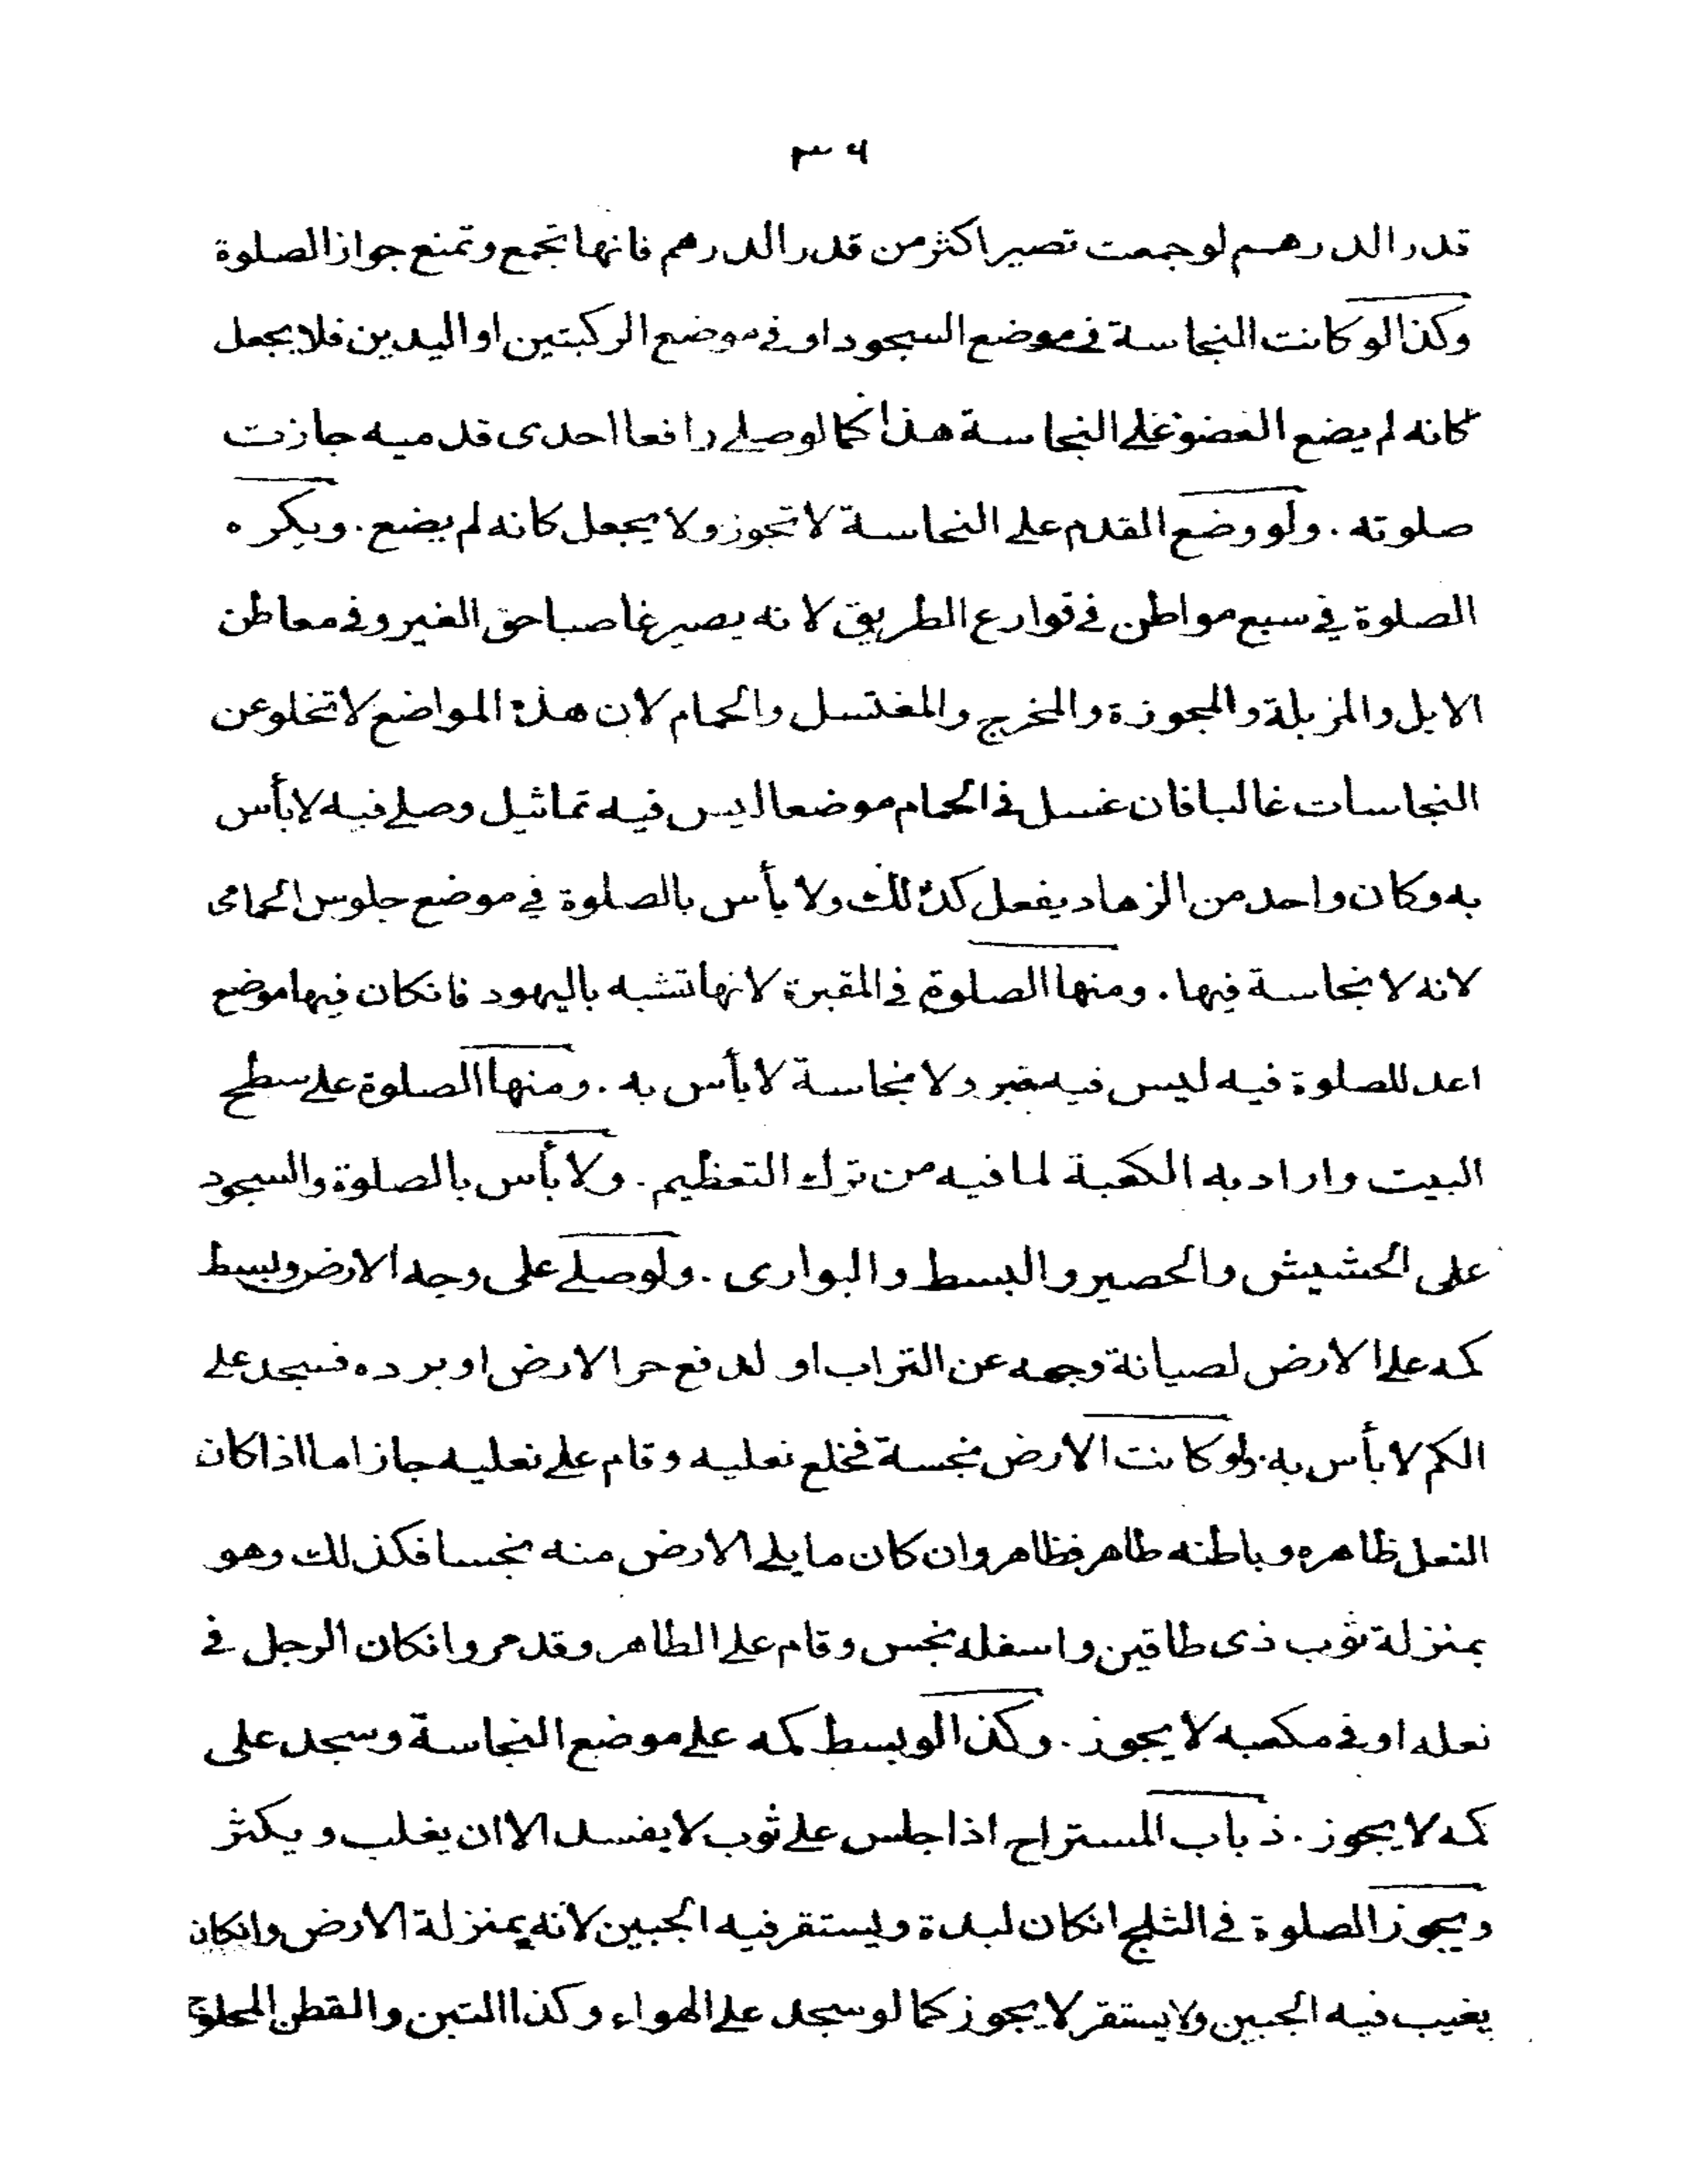 ٣٦
قدر الدرهم لو جمعت تصير اكثر من قدر الدرهم فانها تجمع وتمنع جواز الصلوة
وكذا لو كانت النجاسة في موضع السجود او في موضع الركبتين او اليدين فلا يجعل
كانه لم يضع العضو على النجاسة هذا كما لو صلى رافعا احدى قدميه جازت
صلوته . ولو وضع القدم على النجاسة لا تجوز ولا يجعل كانه لم يضع . ويكره
الصلوة في سبع مواطن في قوارع الطريق لانه يصير غاصبا حق الغير وفي معاطن
الابل والمزبلة والمجوزة والمخرج والمغتسل والحمام لان هذه المواضع لا تخلو عن
النجاسات غالبا فان غسل في الحمام موضعا ليس فيه تماثيل وصلى فيه لا بأس
به وكان واحد من الزهاد يفعل كذلك ولا بأس بالصلوة في موضع جلوس الحمامى
لانه لا نجاسة فيها . ومنها الصلوة في المقبرة لانها تشبه باليهود فانكان فيها موضع
اعد للصلوة فيه ليس فيه قبر ولا نجاسة لا بأس به . ومنها الصلوة على سطح
البيت واراد به الكعبة لما فيه من ترك التعظيم . ولا بأس بالصلوة والسجود
على الحشيش والحصير والبسط والبوارى . ولو صلى على وجه الارض وبسط
كمه على الارض لصيانة وجهه عن التراب او لدفع حر الارض او برده فسجد على
الكم لا بأس به . ولو كانت الارض نجسة فخلع نعليه وقام على نعليه جاز اما اذا كان
النعل ظاهره وباطنه طاهر فظاهر وان كان ما يلى الارض منه نجسا فكذلك وهو
بمنزلة ثوب ذى طاقين واسفله نجس وقام على الطاهر وقد مر وانكان الرجل في
نعله او في مكعبه لا يجوز . وكذا لو بسط كمه على موضع النجاسة وسجد على
كمه لا يجوز . ذباب المستراح اذا جلس على ثوب لا يفسد الا ان يغلب ويكثر
ويجوز الصلوة في الثلج انكان لبدة ويستقر فيه الجبين لانه بمنزلة الارض وانكان
يغيب فيه الجبين ولا يستقر لا يجوز كما لو سجد على الهواء وكذا التبن والقطن المحلوج